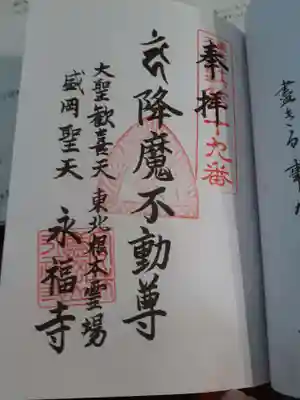 奉拝
十九番
降魔不動尊
大聖歓喜天 東北根本霊場
盛岡聖天 永福寺
蓋きる